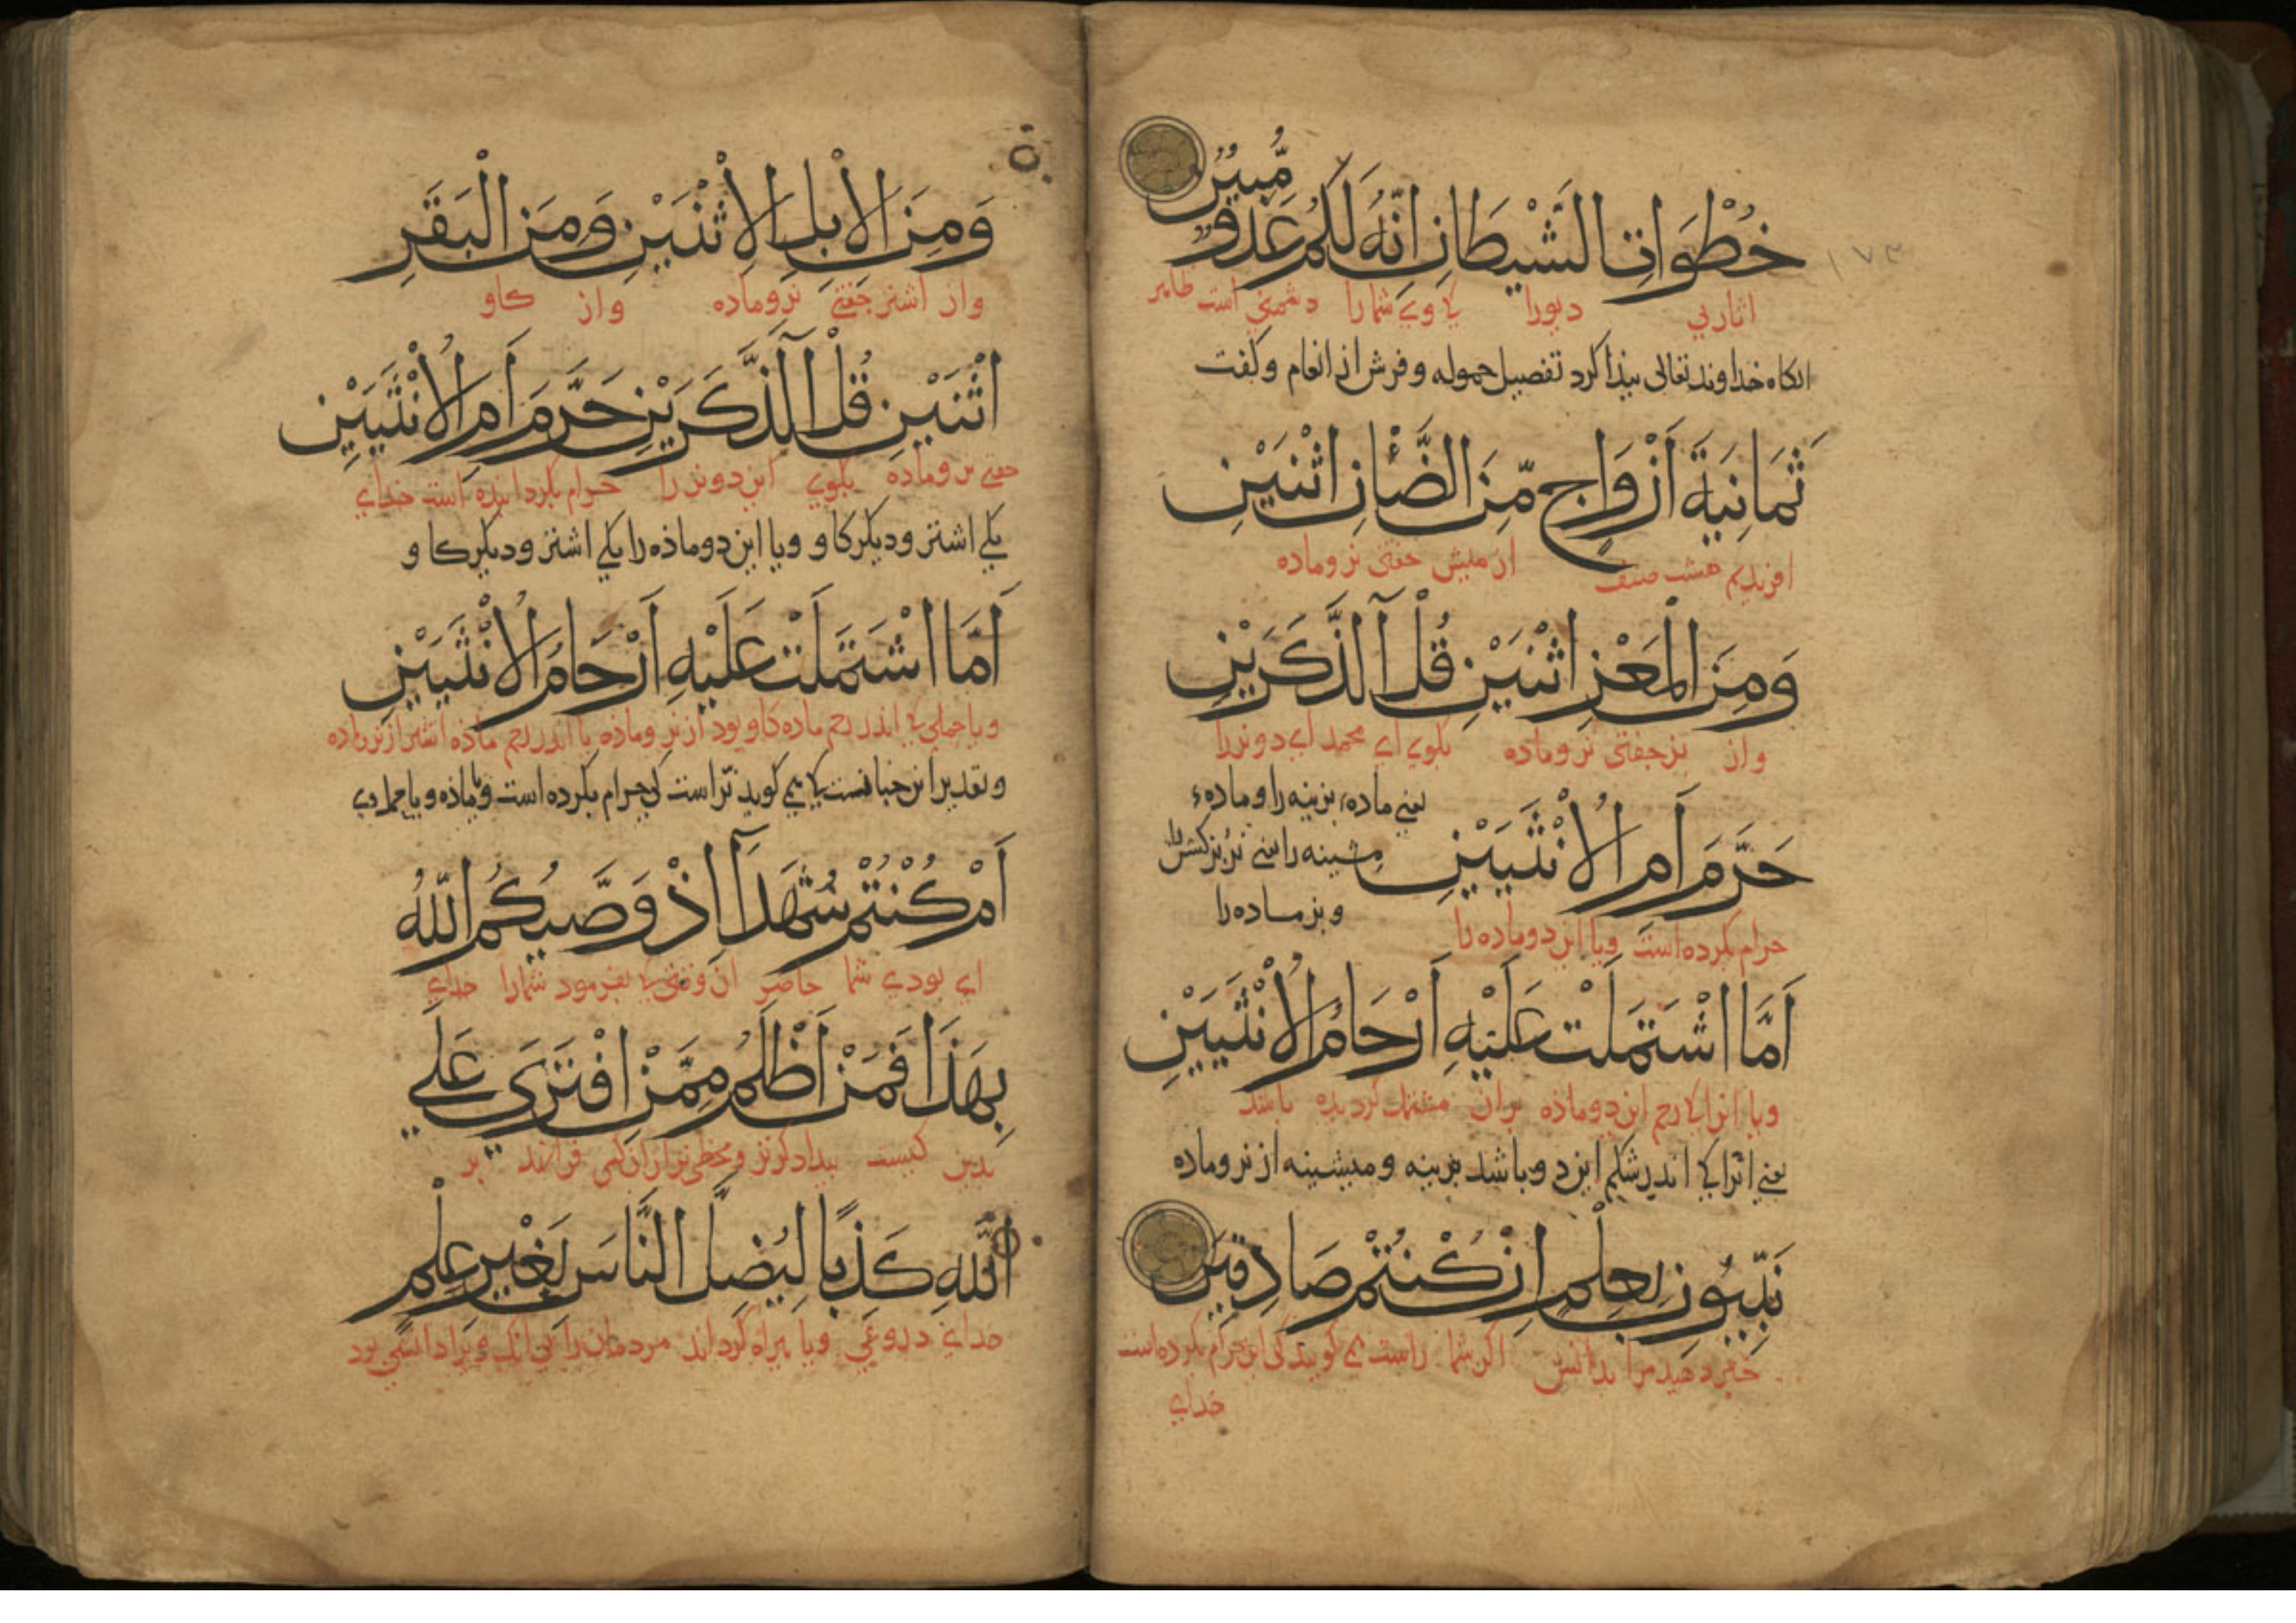 خُطْوَاتِ الشَّيْطَانِ اِنَّهُ لَكُمْ عَدُوٌّ مُّبِيْنٌ
۱۷۳
اثار پی دیورا کی وی شما را دشمنی است ظاهر
انکاه خداوند تعالی بیذا کرد تفصیل حموله و فرش از انعام و کفت
ثَمَانِيَةَ اَزْوَاجٍ مِّنَ الضَّأْنِ اثْنَيْنِ
افریدیم هشت صنف از میش جفتی نر و ماده
وَمِنَ الْمَعْزِ اثْنَيْنِ قُلْ آلذَّكَرَيْنِ
و از بز جفتی نر و ماده بکوی ای محمد ای دو نر را
حَرَّمَ اَمِ الْاُنْثَيَيْنِ
یعنی ماده بزینه را و ماده
میشینه را
و بز ماده را
حرام بکرده است و یا این دو ماده را
اَمَّا اشْتَمَلَتْ عَلَيْهِ اَرْحَامُ الْاُنْثَيَيْنِ
و یا انرا کی رحم این دو ماذه بران مشتمل کردیده باشد
یعنی انرا کی اندر شکم این دو باشد بزینه و میشینه از نر و ماده
نَبِّئُونِي بِعِلْمٍ اِنْ كُنْتُمْ صَادِقِيْنَ
خبر دهید مرا بدانش اکر شما راست می کویید کی این حرام بکرده است
خدای
وَمِنَ الْاِبِلِ الْاِثْنَيْنِ وَمِنَ الْبَقَرِ
و از اشتر جفتی نر و ماده و از کاو
اثْنَيْنِ قُلْ آلذَّكَرَيْنِ حَرَّمَ اَمِ الْاُنْثَيَيْنِ
جفتی نر و ماده بکوی این دو نر را حرام بکردانیده است خدای
یکی اشتر و دیکر کاو و یا این دو ماذه را یکی اشتر و دیکر کاو
اَمَّا اشْتَمَلَتْ عَلَيْهِ اَرْحَامُ الْاُنْثَيَيْنِ
و یا حملی کی اندر رحم ماده کاو بود از نر و ماذه یا اندر رحم ماذه اشتر از نر و ماده
و تقدیر این جنانست کی می کوید نر است کی حرام بکرده است و یا ماذه و یا حمل وی
اَمْ كُنْتُمْ شُهَدَآءَ اِذْ وَصَّيكُمُ اللّٰهُ
ای بودی شما حاضر ان وقتی کی بفرمود شما را خدای
بِهَذَا فَمَنْ اَظْلَمُ مِمَّنِ افْتَرَي عَلَي
بدین کیست بیدادکرتر و مخطی تر از ان کس فرا بندد بر
اللّٰهِ كَذِبًا لِيُضِلَّ النَّاسَ بِغَيْرِ عِلْمٍ
خدای دروغی و یا بیراه کرداند مردمان را بی انک ویرا دانشی بود